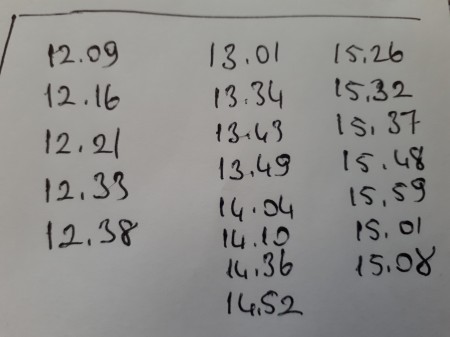 12.09
12.16
12.21
12.33
12.38
13.01
13.34
13.43
13.49
14.04
14.10
14.36
14.52
15.26
15.32
15.37
15.48
15.59
15.01
15.08